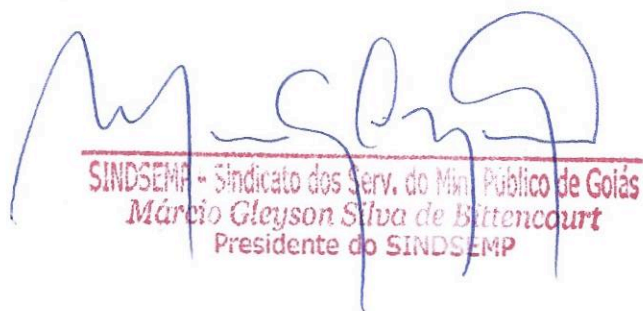 SINDSEMP - Sindicato dos Serv. do Min. Público de Goiás
Márcio Gleyson Silva de Bittencourt
Presidente do SINDSEMP